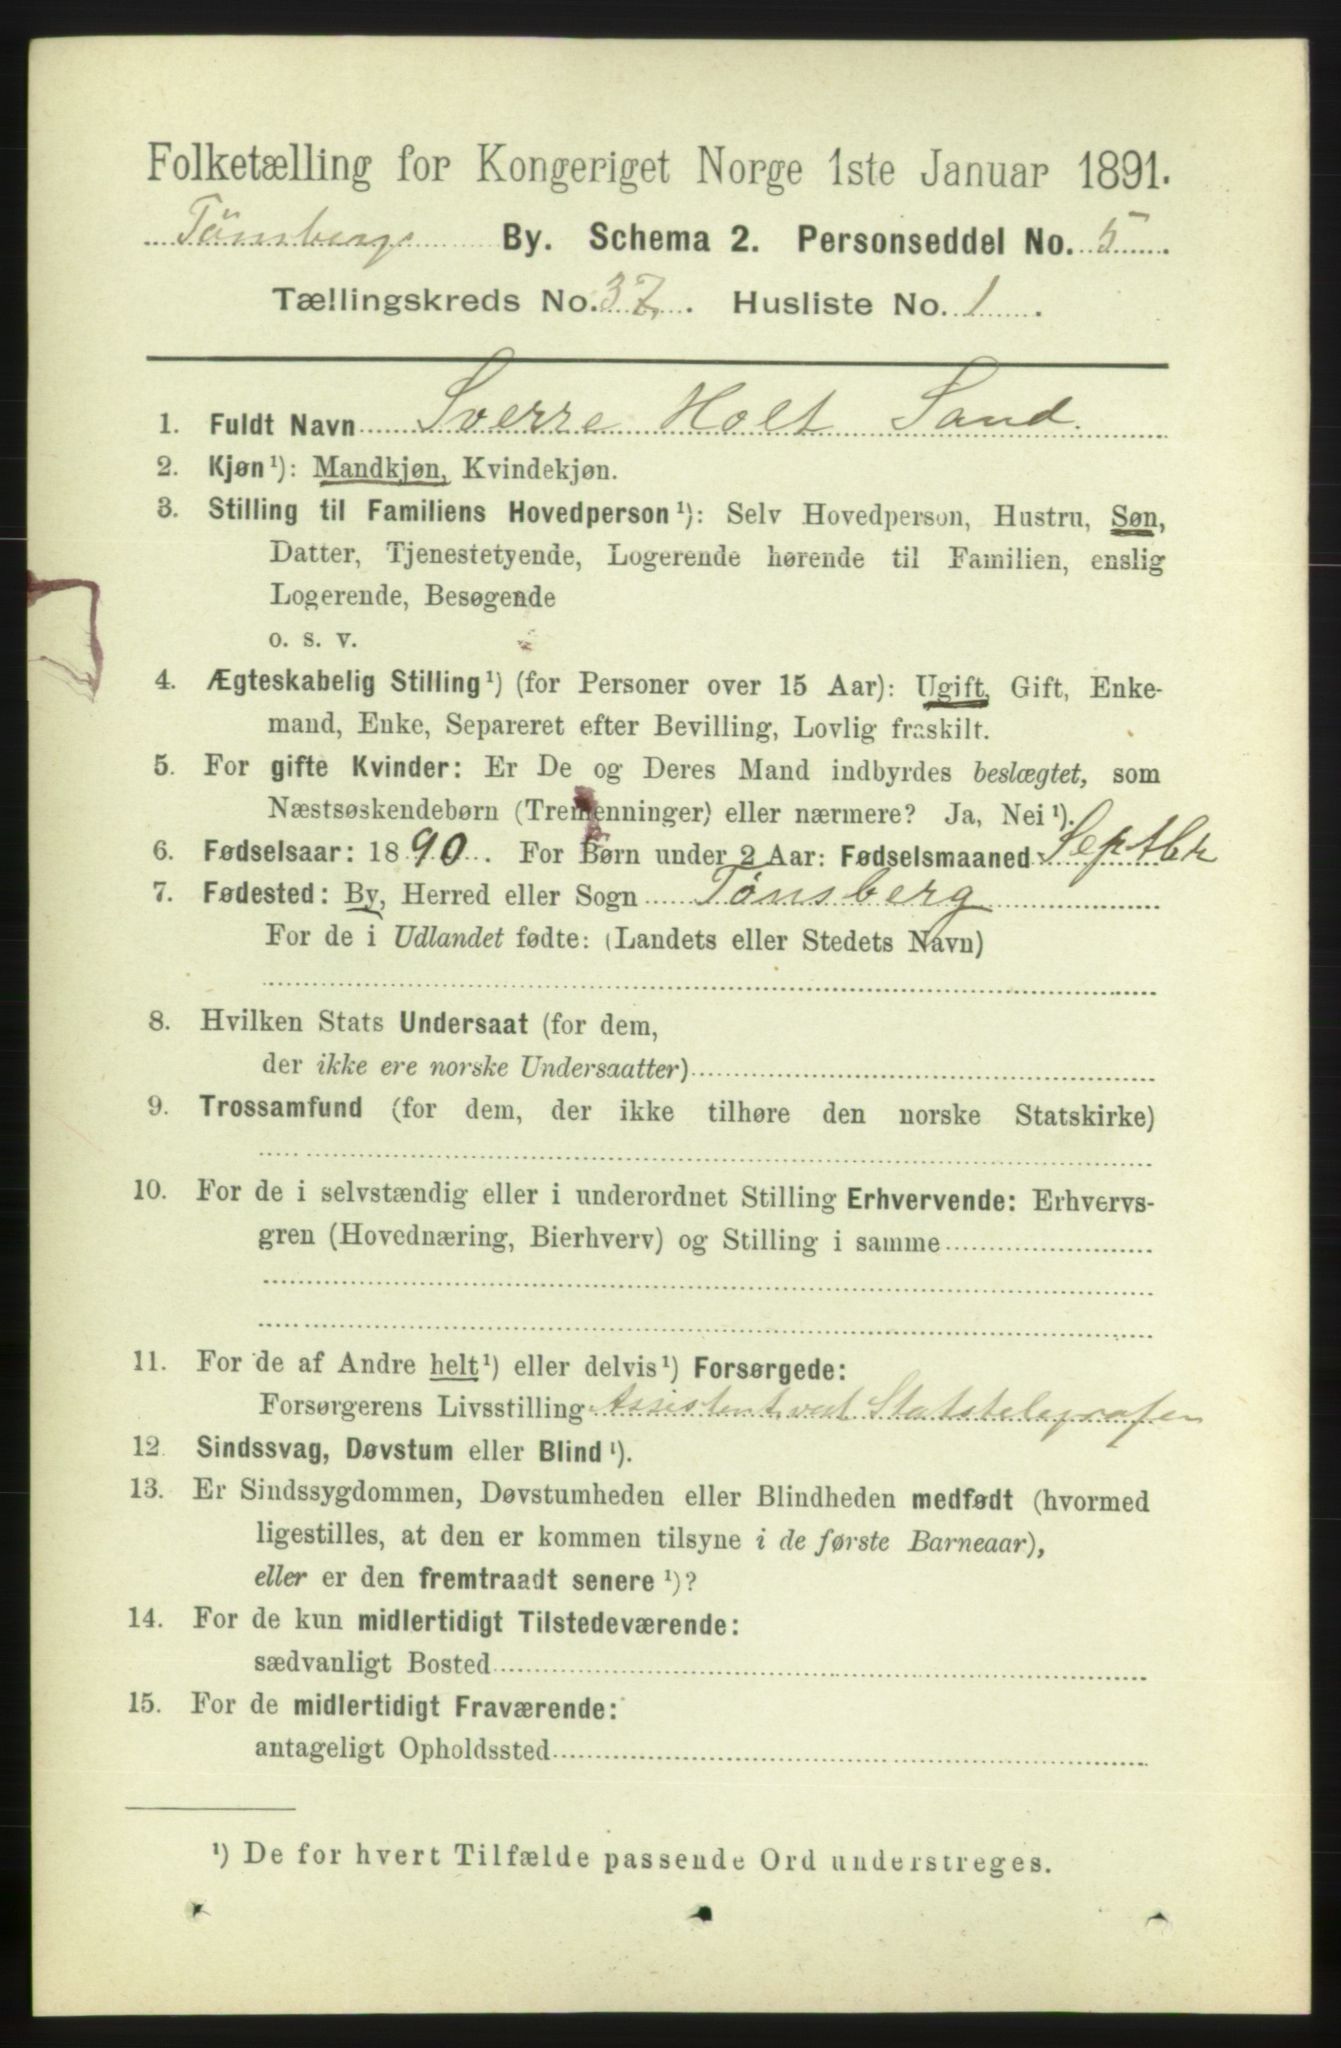 Folketælling for Kongeriget Norge 1ste Januar 1891.
Tönsbergs By. Schema 2. Personseddel No. 5
Tællingskreds No. 37. Husliste No. 1.
1. Fuldt Navn Sverre Holt Sand.
2. Kjøn¹): Mandkjøn, Kvindekjøn.
3. Stilling til Familiens Hovedperson¹): Selv Hovedperson, Hustru, Søn,
Datter, Tjenestetyende, Logerende hørende til Familien, enslig
Logerende, Besøgende
o. s. v.
4. Ægteskabelig Stilling¹) (for Personer over 15 Aar): Ugift, Gift, Enke-
mand, Enke, Separeret efter Bevilling, Lovlig fraskilt.
5. For gifte Kvinder: Er De og Deres Mand indbyrdes beslægtet, som
Næstsøskendebørn (Tremenninger) eller nærmere? Ja, Nei¹).
6. Fødselsaar: 1890. For Børn under 2 Aar: Fødselsmaaned Septbr
7. Fødested: By, Herred eller Sogn Tønsberg
For de i Udlandet fødte: (Landets eller Stedets Navn)
8. Hvilken Stats Undersaat (for dem,
der ikke ere norske Undersaatter)
9. Trossamfund (for dem, der ikke tilhøre den norske Statskirke)
10. For de i selvstændig eller i underordnet Stilling Erhvervende: Erhvervs-
gren (Hovednæring, Bierhverv) og Stilling i samme
11. For de af Andre helt¹) eller delvis¹) Forsørgede:
Forsørgerens Livsstilling Assistent ved Statstelegrafen
12. Sindssvag, Døvstum eller Blind¹).
13. Er Sindssygdommen, Døvstumheden eller Blindheden medfødt (hvormed
ligestilles, at den er kommen tilsyne i de første Barneaar),
eller er den fremtraadt senere¹)?
14. For de kun midlertidigt Tilstedeværende:
sædvanligt Bosted
15. For de midlertidigt Fraværende:
antageligt Opholdssted
¹) De for hvert Tilfælde passende Ord understreges.